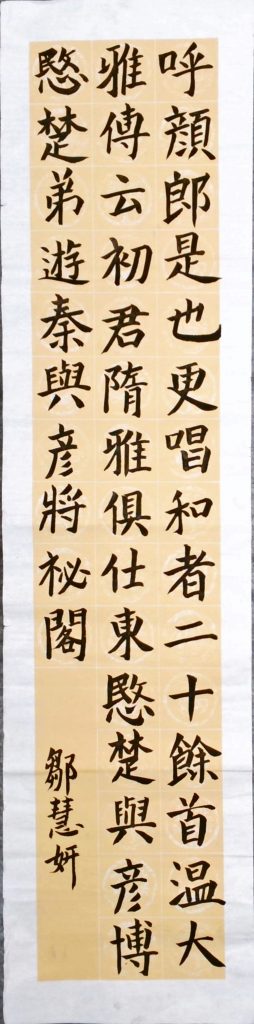 呼顔郎是也更唱和者二十餘首温大
雅傳云初君隋雅俱仕東愍楚與彦博
愍楚弟遊秦與彦將祕閣
鄒慧妍